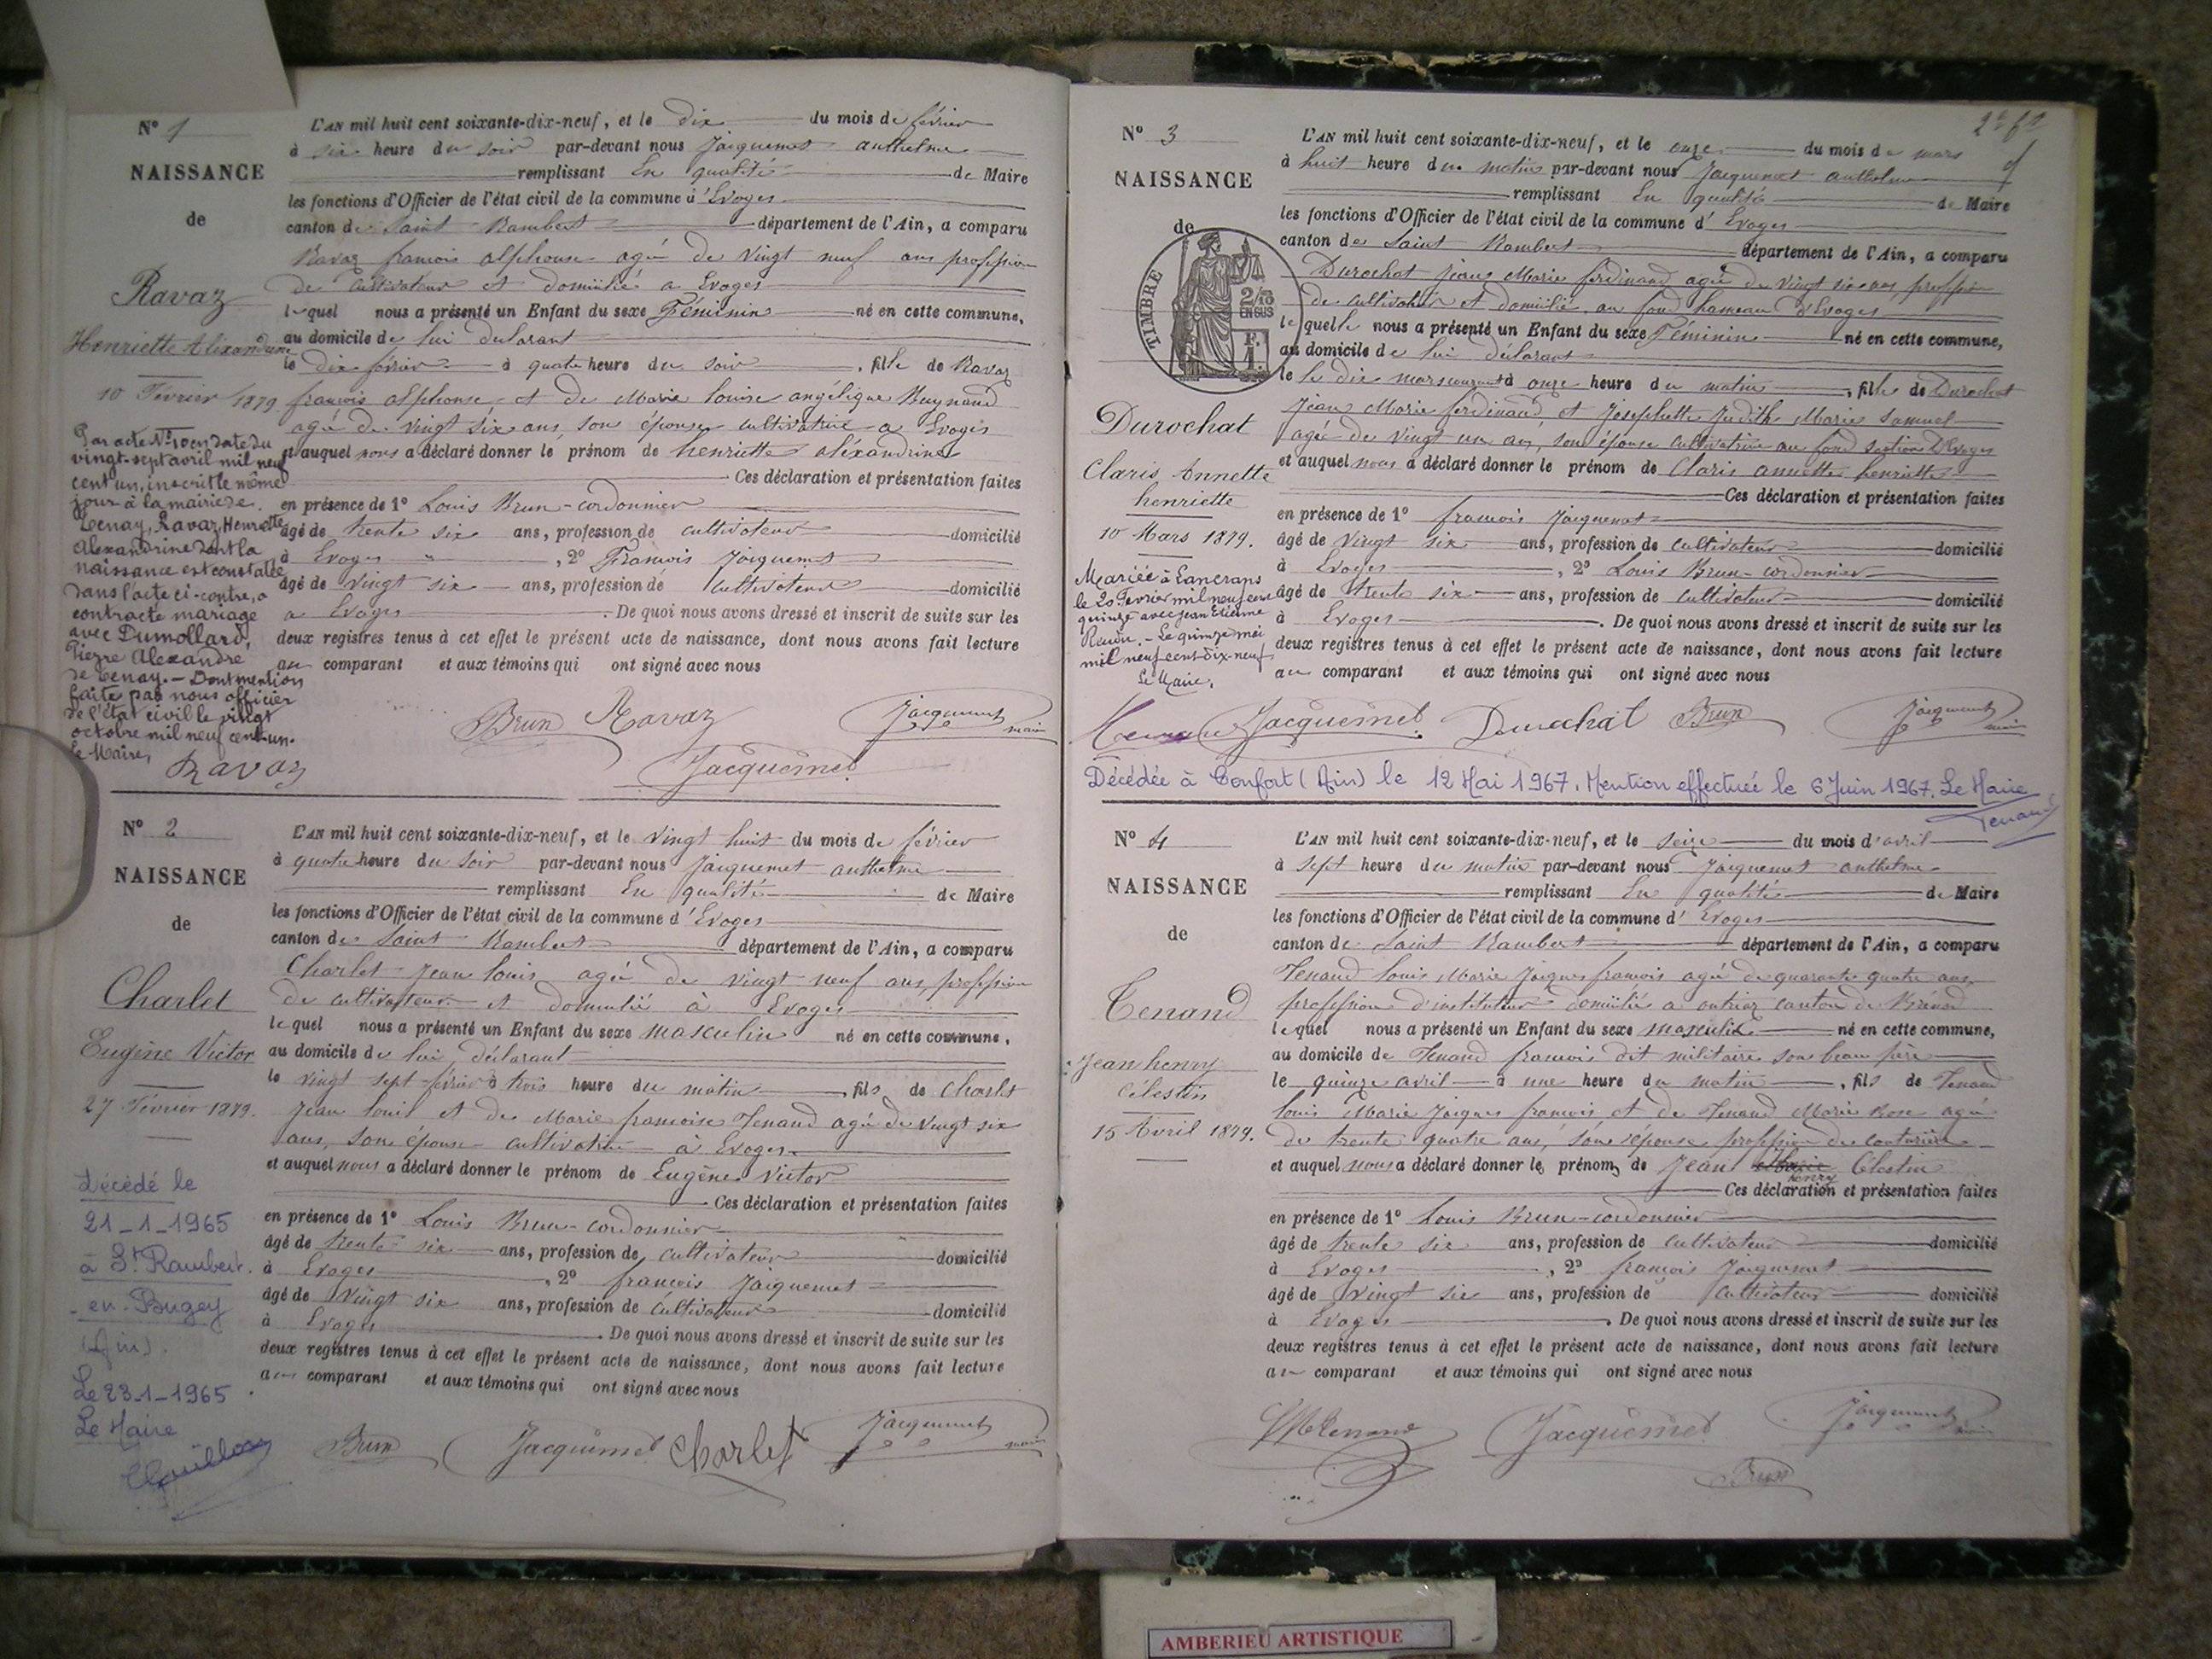 N° 1
NAISSANCE
de
Ravaz
Henriette Alixandrine
10 Février 1879.
Par acte N° 10 en date du
vingt-sept avril mil neuf
cent un, inscrit le même
jour à la mairie de
Tenay, Ravaz, Henriette
Alexandrine dont la
naissance est constatée
dans l'acte ci-contre, a
contracté mariage
avec Dumollard,
Pierre Alexandre
de Tenay. – Dont mention
faite par nous officier
de l'état civil le vingt
octobre mil neuf cent-un.
Le Maire,
Ravaz
L'AN mil huit cent soixante-dix-neuf, et le dix du mois de février
à six heure du soir par-devant nous Jacquemet anthelme
remplissant En qualité de Maire
les fonctions d'Officier de l'état civil de la commune d'Evoges
canton de Saint Rambert département de l'Ain, a comparu
Ravaz francois alphonse agé de vingt neuf ans profession
de cultivateur et domicilié a Evoges
lequel nous a présenté un Enfant du sexe Féminin né en cette commune,
au domicile de lui déclarant
le dix février à quatre heure du soir, fille de Ravaz
francois alphonse et de Marie louise angélique Buynand
agée de vingt six ans, son épouse cultivatrice a Evoges
et auquel nous a déclaré donner le prénom de henriette aléxandrine
Ces déclaration et présentation faites
en présence de 1° Louis Brun-cordonnier
âgé de trente six ans, profession de cultivateur domicilié
à Evoges, 2° Francois Jacquemet
âgé de vingt six ans, profession de cultivateur domicilié
a Evoges. De quoi nous avons dressé et inscrit de suite sur les
deux registres tenus à cet effet le présent acte de naissance, dont nous avons fait lecture
au comparant et aux témoins qui ont signé avec nous
Brun Ravaz Jacquemet maire
Jacquemet
N° 2
NAISSANCE
de
Charlet
Eugène Victor
27 Février 1879.
Décédé le
21-1-1965
à St Rambert
-en-Bugey
(Ain).
Le 23-1-1965
Le Maire
L'AN mil huit cent soixante-dix-neuf, et le vingt huit du mois de février
à quatre heure du soir par-devant nous Jacquemet anthelme
remplissant En qualité de Maire
les fonctions d'Officier de l'état civil de la commune d'Evoges
canton de Saint Rambert département de l'Ain, a comparu
Charlet Jean louis agé de vingt neuf ans, profession
de cultivateur et domicilié à Evoges
lequel nous a présenté un Enfant du sexe masculin né en cette commune,
au domicile de lui déclarant
le vingt sept février à trois heure du matin, fils de Charlet
Jean louis et de Marie francoise Tenand agée de vingt six
ans, son épouse cultivatrice à Evoges
et auquel nous a déclaré donner le prénom de Eugène Victor
Ces déclaration et présentation faites
en présence de 1° Louis Brun-cordonnier
âgé de trente six ans, profession de cultivateur domicilié
à Evoges, 2° francois Jacquemet
âgé de vingt six ans, profession de cultivateur domicilié
à Evoges. De quoi nous avons dressé et inscrit de suite sur les
deux registres tenus à cet effet le présent acte de naissance, dont nous avons fait lecture
au comparant et aux témoins qui ont signé avec nous
Brun Jacquemet Charlet Jacquemet maire
N° 3
NAISSANCE
de
TIMBRE
2/10 EN SUS
F. 1.
Durochat
Claris Annette
henriette
10 Mars 1879.
Mariée à Lancrans
le 20 Fevrier mil neuf cent
quinze avec Jean Etienne
– Le quinze mai
mil neuf cent dix-neuf
Le Maire,
L'AN mil huit cent soixante-dix-neuf, et le onze du mois de mars
à huit heure du matin par-devant nous Jacquemet anthelme
remplissant En qualité de Maire
les fonctions d'Officier de l'état civil de la commune d'Evoges
canton de Saint Rambert département de l'Ain, a comparu
Durochat Jean Marie ferdinand agé de vingt six ans, profession
de cultivateur et domicilié au fond hameau d'Evoges
lequelle nous a présenté un Enfant du sexe Féminin né en cette commune,
au domicile de lui déclarant
le le dix mars courant à onze heure du matin, fille de Durochat
Jean Marie ferdinand et Josephette Judith Marie Samuel
agée de vingt un an, son épouse cultivatrice au fond section d'Evoges
et auquel nous a déclaré donner le prénom de Claris annette henriette
Ces déclaration et présentation faites
en présence de 1° francois Jacquemet
âgé de vingt six ans, profession de cultivateur domicilié
à Evoges, 2° Louis Brun-cordonnier
âgé de trente six ans, profession de cultivateur domicilié
à Evoges. De quoi nous avons dressé et inscrit de suite sur les
deux registres tenus à cet effet le présent acte de naissance, dont nous avons fait lecture
au comparant et aux témoins qui ont signé avec nous
Jacquemet Durochat Brun Jacquemet maire
Décédée à Confort (Ain) le 12 Mai 1967. Mention effectuée le 6 Juin 1967. Le Maire
Tenand
N° 4
NAISSANCE
de
Tenand
Jean henry
Célestin
15 Avril 1879.
L'AN mil huit cent soixante-dix-neuf, et le seize du mois d'avril
à sept heure du matin par-devant nous Jacquemet anthelme
remplissant En qualité de Maire
les fonctions d'Officier de l'état civil de la commune d'Evoges
canton de Saint Rambert département de l'Ain, a comparu
Tenand louis Marie Jacques francois agé de quarante quatre ans,
profession d'instituteur domicilié a outriaz canton de Brénod
lequel nous a présenté un Enfant du sexe masculin né en cette commune,
au domicile de Tenand francois dit militaire son beau père
le quinze avril à une heure du matin, fils de Tenand
louis Marie Jacques francois et de Tenand Marie Rose agée
de trente quatre ans, son épouse profession de couturière
et auquel nous a déclaré donner le prénom de Jean Marie henry Célestin
Ces déclaration et présentation faites
en présence de 1° Louis Brun-cordonnier
âgé de trente six ans, profession de cultivateur domicilié
à Evoges, 2° francois Jacquemet
âgé de vingt six ans, profession de cultivateur domicilié
à Evoges. De quoi nous avons dressé et inscrit de suite sur les
deux registres tenus à cet effet le présent acte de naissance, dont nous avons fait lecture
au comparant et aux témoins qui ont signé avec nous
Tenand Jacquemet Jacquemet maire
Brun
AMBERIEU ARTISTIQUE